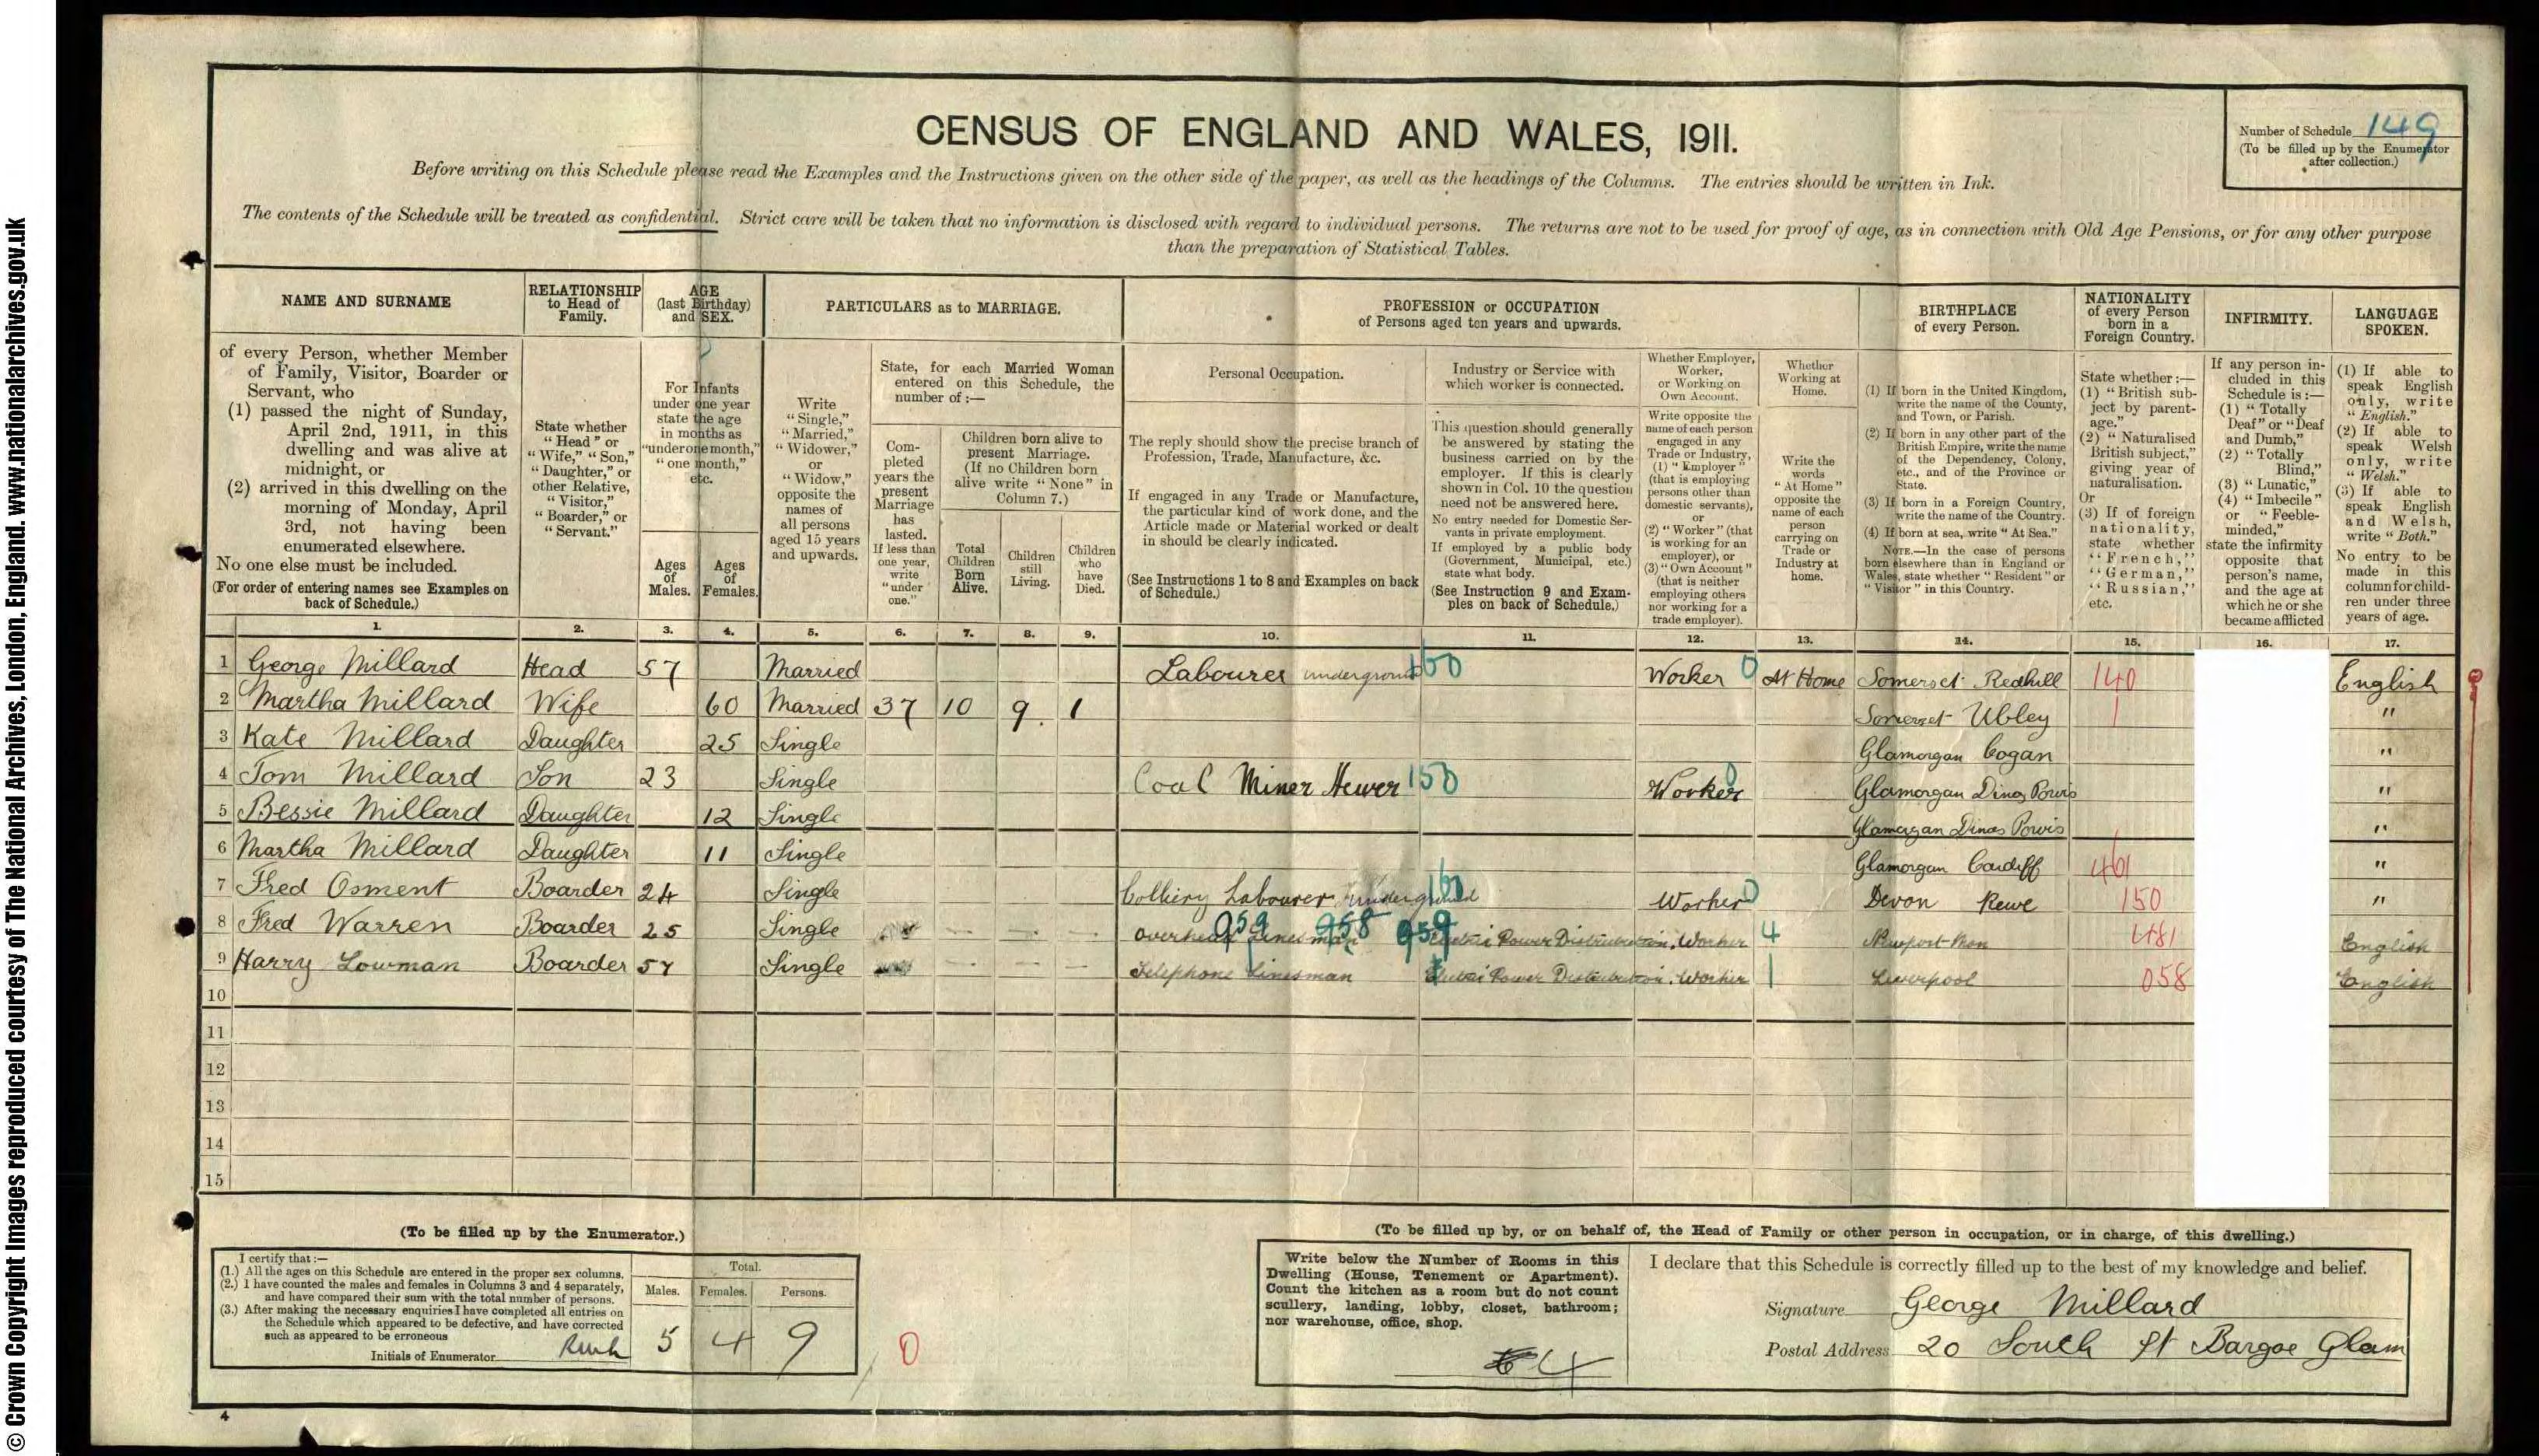 © Crown Copyright Images reproduced courtesy of The National Archives, London, England. www.nationalarchives.gov.uk
CENSUS OF ENGLAND AND WALES, 1911.
Number of Schedule 149
(To be filled up by the Enumerator
after collection.)
Before writing on this Schedule please read the Examples and the Instructions given on the other side of the paper, as well as the headings of the Columns. The entries should be written in Ink.
The contents of the Schedule will be treated as confidential. Strict care will be taken that no information is disclosed with regard to individual persons. The returns are not to be used for proof of age, as in connection with Old Age Pensions, or for any other purpose
than the preparation of Statistical Tables.
NAME AND SURNAME
of every Person, whether Member
of Family, Visitor, Boarder or
Servant, who
(1) passed the night of Sunday,
April 2nd, 1911, in this
dwelling and was alive at
midnight, or
(2) arrived in this dwelling on the
morning of Monday, April
3rd, not having been
enumerated elsewhere.
No one else must be included.
(For order of entering names see Examples on
back of Schedule.)
1.
RELATIONSHIP
to Head of
Family.
State whether
"Head" or
"Wife," "Son,"
"Daughter," or
other Relative,
"Visitor,"
"Boarder," or
"Servant."
2.
AGE
(last Birthday)
and SEX.
For Infants
under one year
state the age
in months as
"under one month,"
"one month,"
etc.
Ages
of
Males.
3.
Ages
of
Females.
4.
PARTICULARS as to MARRIAGE.
Write
"Single,"
"Married,"
"Widower,"
or
"Widow,"
opposite the
names of
all persons
aged 15 years
and upwards.
5.
State, for each Married Woman
entered on this Schedule, the
number of:—
Com-
pleted
years the
present
Marriage
has
lasted.
If less than
one year,
write
"under
one."
6.
Children born alive to
present Marriage.
(If no Children born
alive write "None" in
Column 7.)
Total
Children
Born
Alive.
7.
Children
still
Living.
8.
Children
who
have
Died.
9.
PROFESSION or OCCUPATION
of Persons aged ten years and upwards.
Personal Occupation.
The reply should show the precise branch of
Profession, Trade, Manufacture, &c.
If engaged in any Trade or Manufacture,
the particular kind of work done, and the
Article made or Material worked or dealt
in should be clearly indicated.
(See Instructions 1 to 8 and Examples on back
of Schedule.)
10.
Industry or Service with
which worker is connected.
This question should generally
be answered by stating the
business carried on by the
employer. If this is clearly
shown in Col. 10 the question
need not be answered here.
No entry needed for Domestic Ser-
vants in private employment.
If employed by a public body
(Government, Municipal, etc.)
state what body.
(See Instruction 9 and Exam-
ples on back of Schedule.)
11.
Whether Employer,
Worker,
or Working on
Own Account.
Write opposite the
name of each person
engaged in any
Trade or Industry,
(1) "Employer"
(that is employing
persons other than
domestic servants),
or
(2) "Worker" (that
is working for an
employer), or
(3) "Own Account"
(that is neither
employing others
nor working for a
trade employer).
12.
Whether
Working at
Home.
Write the
words
"At Home"
opposite the
name of each
person
carrying on
Trade or
Industry at
home.
13.
BIRTHPLACE
of every Person.
(1) If born in the United Kingdom,
write the name of the County,
and Town, or Parish.
(2) If born in any other part of the
British Empire, write the name
of the Dependency, Colony,
etc., and of the Province or
State.
(3) If born in a Foreign Country,
write the name of the Country.
(4) If born at sea, write "At Sea."
NOTE.—In the case of persons
born elsewhere than in England or
Wales, state whether "Resident" or
"Visitor" in this Country.
14.
NATIONALITY
of every Person
born in a
Foreign Country.
State whether:—
(1) "British sub-
ject by parent-
age."
(2) "Naturalised
British subject,"
giving year of
naturalisation.
Or
(3) If of foreign
nationality,
state whether
"French,"
"German,"
"Russian,"
etc.
15.
INFIRMITY.
If any person in-
cluded in this
Schedule is:—
(1) "Totally
Deaf" or "Deaf
and Dumb,"
(2) "Totally
Blind,"
(3) "Lunatic,"
(4) "Imbecile"
or "Feeble-
minded,"
state the infirmity
opposite that
person's name,
and the age at
which he or she
became afflicted
16.
LANGUAGE
SPOKEN.
(1) If able to
speak English
only, write
"English."
(2) If able to
speak Welsh
only, write
"Welsh."
(3) If able to
speak English
and Welsh,
write "Both."
No entry to be
made in this
column for child-
ren under three
years of age.
17.
1 George Millard Head 57 Married Labourer underground 160 Worker 0 At Home Somerset Redhill 140 English
2 Martha Millard Wife 60 Married 37 10 9. 1 Somerset Ubley 1 "
3 Kate Millard Daughter 25 Single Glamorgan Cogan "
4 Tom Millard Son 23 Single Coal Miner Hewer 150 Worker 0 Glamorgan Dinas Powis "
5 Bessie Millard Daughter 12 Single Glamorgan Dinas Powis "
6 Martha Millard Daughter 11 Single Glamorgan Cardiff 401 "
7 Fred Osment Boarder 24 Single Colliery Labourer underground 160 Worker 0 Devon Rewe 150 "
8 Fred Warren Boarder 25 Single — — — overhead Linesman 959 958 959 Electric Power Distribution. Worker 4 Newport Mon 481 English
9 Harry Lowman Boarder 57 Single — — — Telephone Linesman Electric Power Distribution. Worker 1 Liverpool 058 English
10
11
12
13
14
15
(To be filled up by the Enumerator.)
I certify that:—
(1.) All the ages on this Schedule are entered in the proper sex columns.
(2.) I have counted the males and females in Columns 3 and 4 separately,
and have compared their sum with the total number of persons.
(3.) After making the necessary enquiries I have completed all entries on
the Schedule which appeared to be defective, and have corrected
such as appeared to be erroneous
Initials of Enumerator
Total.
Males. Females. Persons.
5 4 9
0
(To be filled up by, or on behalf of, the Head of Family or other person in occupation, or in charge, of this dwelling.)
Write below the Number of Rooms in this
Dwelling (House, Tenement or Apartment).
Count the kitchen as a room but do not count
scullery, landing, lobby, closet, bathroom;
nor warehouse, office, shop.
4
I declare that this Schedule is correctly filled up to the best of my knowledge and belief.
Signature George Millard
Postal Address 20 South St Bargoe Glam
4